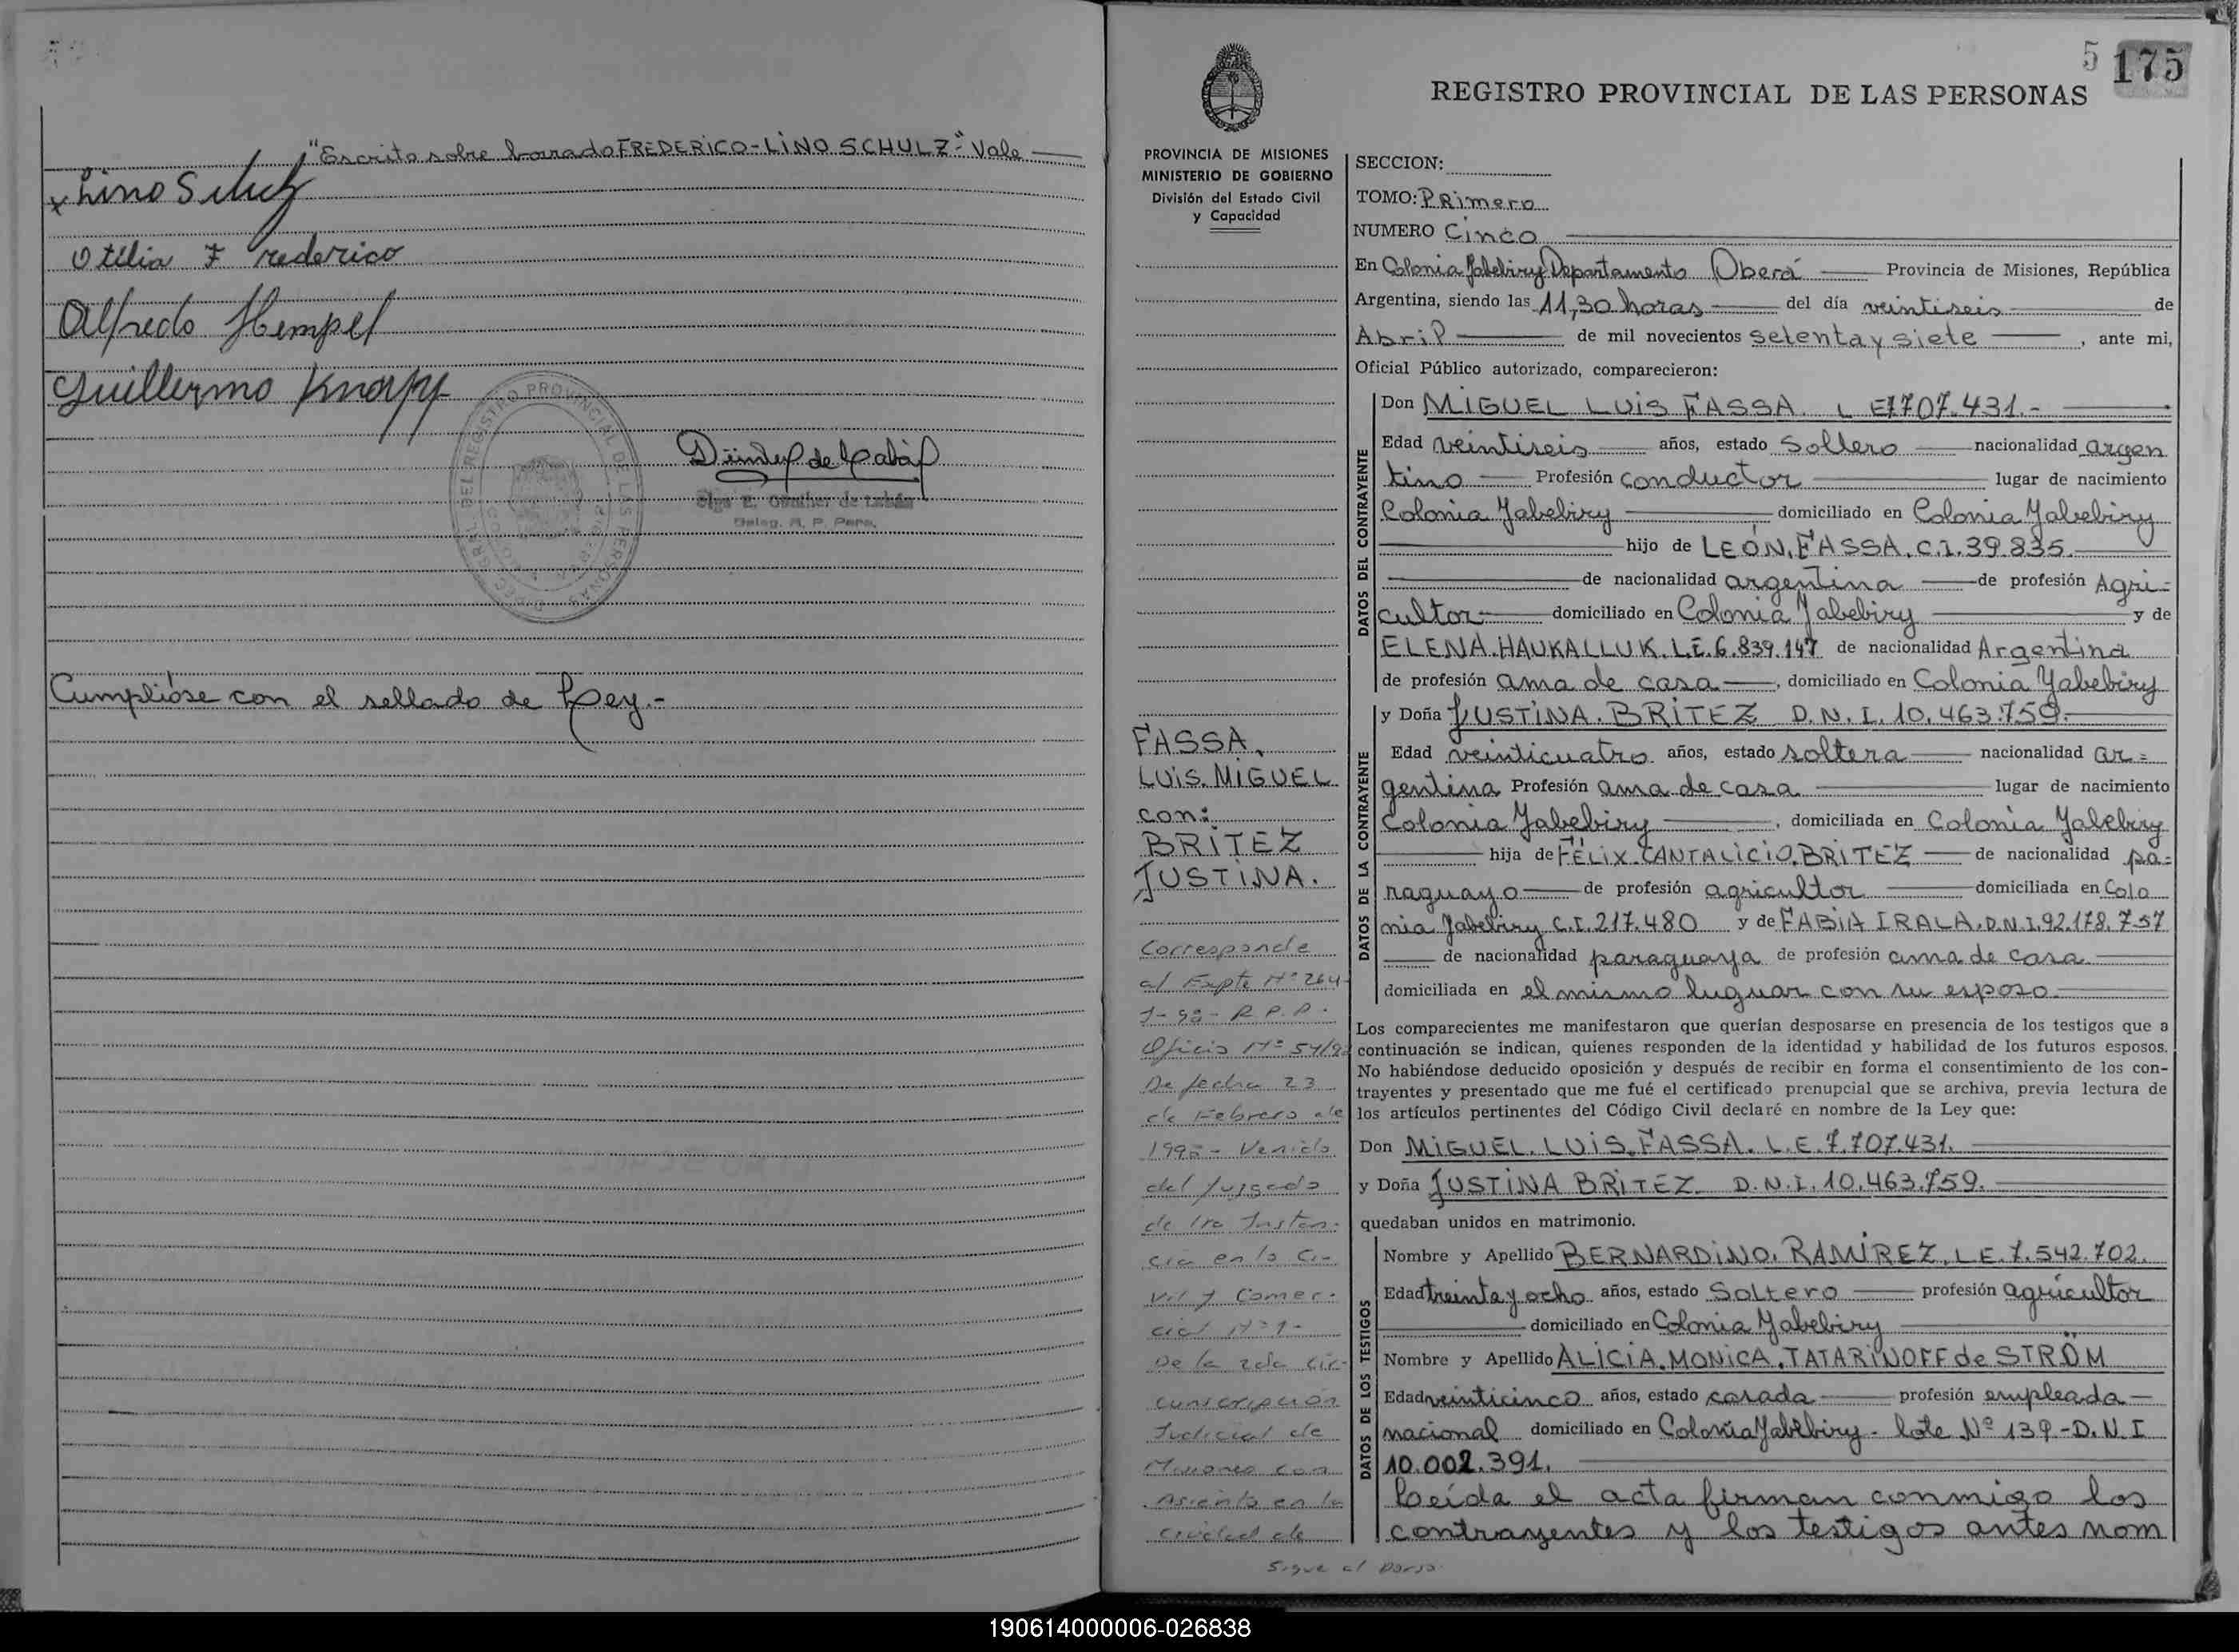 "Escrito sobre borrado FREDERICO-LINO SCHULZ"- Vale
x Lino Schulz
Otilia Frederico
Alfredo Hempel
Guillermo Knapp
DIREC. GRAL. DEL REGISTRO PROVINCIAL DE LAS PERSONAS
Olga E. Günther de
Deleg. R. P. Pers.
Cumplióse con el sellado de Ley.-
5 175
REGISTRO PROVINCIAL DE LAS PERSONAS
PROVINCIA DE MISIONES
MINISTERIO DE GOBIERNO
División del Estado Civil
y Capacidad
FASSA,
LUIS. MIGUEL
con:
BRITEZ
JUSTINA.
Corresponde
al Expte Nº 264
R.P.P.
Oficio Nº 54/92
De fecha 23
de Febrero de
1992- Venido
del Juzgado
de 1ra Instan-
cia en lo Ci-
vil y Comer-
cial Nº 1-
De la 2da Cir-
cunscripción
Judicial de
Misiones con
Asiento en la
ciudad de
Sigue al Dorso
SECCION:
TOMO: PRimero
NUMERO Cinco
En Colonia Yabebiry Departamento Oberá Provincia de Misiones, República
Argentina, siendo las 11,30 horas del día veintiseis de
Abril de mil novecientos setenta y siete , ante mi,
Oficial Público autorizado, comparecieron:
DATOS DEL CONTRAYENTE
Don MIGUEL LUIS FASSA. L E 7.707.431.-
Edad veintiseis años, estado Soltero nacionalidad argen
tino Profesión conductor lugar de nacimiento
Colonia Yabebiry domiciliado en Colonia Yabebiry
hijo de LEÓN, FASSA. C.I. 39.835.
de nacionalidad argentina de profesión Agri-
cultor domiciliado en Colonia Yabebiry y de
ELENA. HAUKALLUK. L.E. 6.839.147 de nacionalidad Argentina
de profesión ama de casa , domiciliado en Colonia Yabebiry
DATOS DE LA CONTRAYENTE
y Doña JUSTINA. BRITEZ D. N. I. 10.463.759.
Edad veinticuatro años, estado soltera nacionalidad ar-
gentina Profesión ama de casa lugar de nacimiento
Colonia Yabebiry , domiciliada en Colonia Yabebiry
hija de FÉLIX-CANTALICIO, BRITEZ de nacionalidad pa-
raguayo de profesión agricultor domiciliada en Colo
nia Yabebiry C.I. 217.480 y de FABIA IRALA. D.N.I. 92.178.757
de nacionalidad paraguaya de profesión ama de casa
domiciliada en el mismo luguar con su esposo.
Los comparecientes me manifestaron que querían desposarse en presencia de los testigos que a
continuación se indican, quienes responden de la identidad y habilidad de los futuros esposos.
No habiéndose deducido oposición y después de recibir en forma el consentimiento de los con-
trayentes y presentado que me fué el certificado prenupcial que se archiva, previa lectura de
los artículos pertinentes del Código Civil declaré en nombre de la Ley que:
Don MIGUEL. LUIS. FASSA. L.E. 7.707.431.
y Doña JUSTINA BRITEZ. D. N. I. 10.463.759.
quedaban unidos en matrimonio.
DATOS DE LOS TESTIGOS
Nombre y Apellido BERNARDINO. RAMÍREZ, L.E. 7.542.702.
Edad treinta y ocho años, estado Soltero profesión agricultor
domiciliado en Colonia Yabebiry
Nombre y Apellido ALICIA. MONICA. TATARINOFF de STRÖM
Edad veinticinco años, estado casada profesión empleada
nacional domiciliado en Colonia Yabebiry- lote Nº 139-D.N.I
10.002.391.
Leída el acta firman conmigo los
contrayentes y los testigos antes nom
190614000006-026838